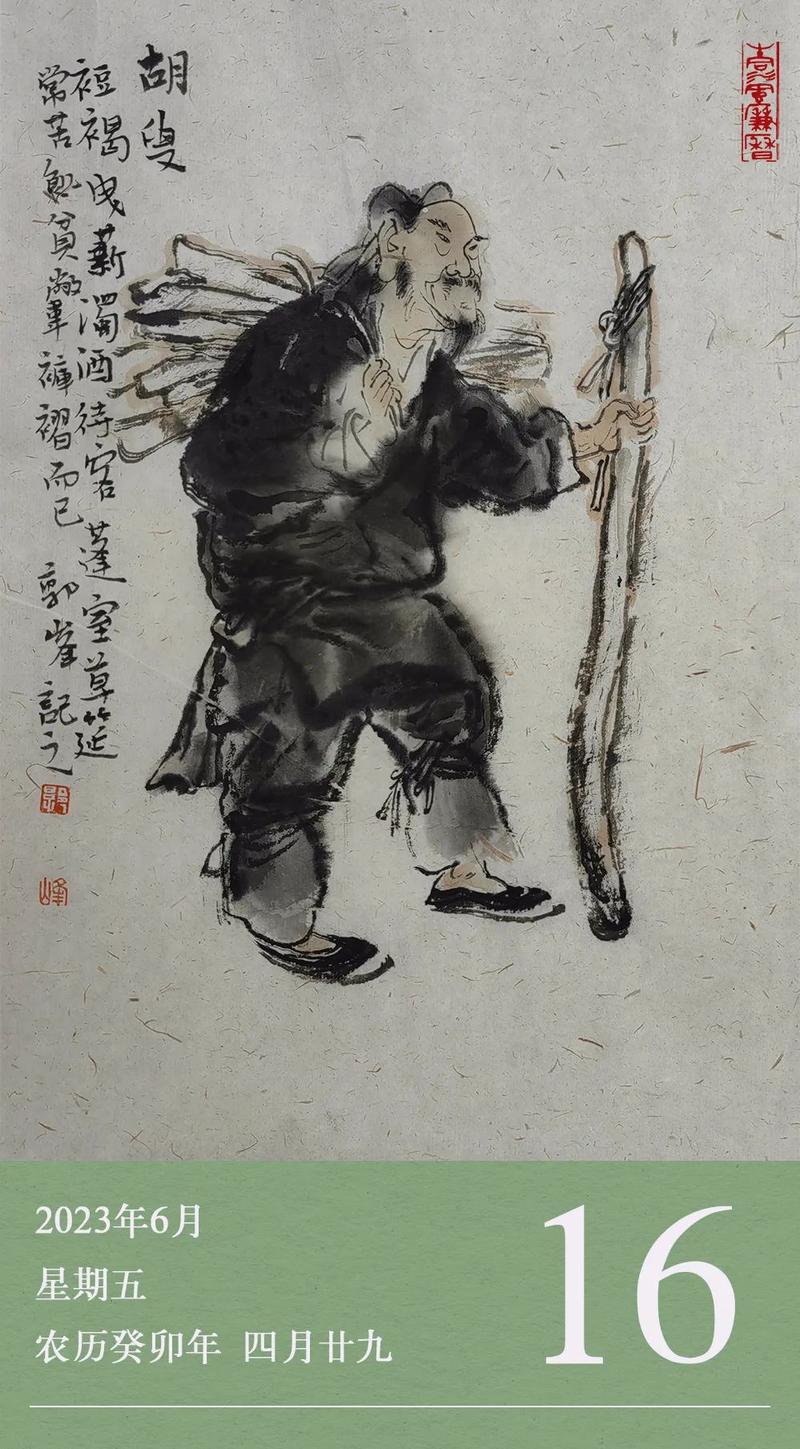 胡叟
裋褐曳薪濁酒待客蓬室草筵
常苦飢貧敝韋褲褶而已 郭峯記之
峰
2023年6月
星期五
农历癸卯年 四月廿九
16